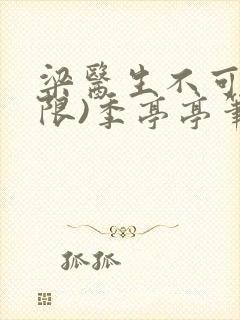 梁醫生不可
限)季亭亭筆
孤孤